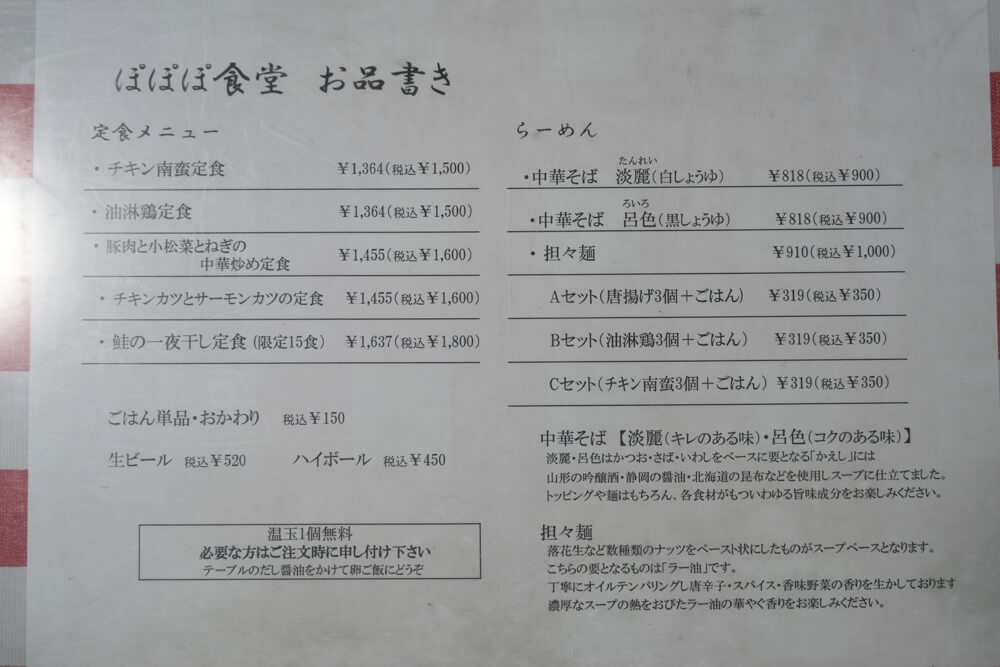 ぽぽぽ食堂 お品書き
定食メニュー
・チキン南蛮定食 ¥1,364(税込¥1,500)
・油淋鶏定食 ¥1,364(税込¥1,500)
・豚肉と小松菜とねぎの
中華炒め定食 ¥1,455(税込¥1,600)
・チキンカツとサーモンカツの定食 ¥1,455(税込¥1,600)
・鮭の一夜干し定食(限定15食) ¥1,637(税込¥1,800)
ごはん単品・おかわり 税込¥150
生ビール 税込¥520 ハイボール 税込¥450
温玉1個無料
必要な方はご注文時に申し付け下さい
テーブルのだし醤油をかけて卵ご飯にどうぞ
らーめん
たんれい
・中華そば 淡麗(白しょうゆ) ¥818(税込¥900)
ろいろ
・中華そば 呂色(黒しょうゆ) ¥818(税込¥900)
・担々麺 ¥910(税込¥1,000)
Aセット(唐揚げ3個+ごはん) ¥319(税込¥350)
Bセット(油淋鶏3個+ごはん) ¥319(税込¥350)
Cセット(チキン南蛮3個+ごはん) ¥319(税込¥350)
中華そば 【淡麗(キレのある味)・呂色(コクのある味)】
淡麗・呂色はかつお・さば・いわしをベースに要となる「かえし」には
山形の吟醸酒・静岡の醤油・北海道の昆布などを使用しスープに仕立てました。
トッピングや麺はもちろん、各食材がもついわゆる旨味成分をお楽しみください。
担々麺
落花生など数種類のナッツをペースト状にしたものがスープベースとなります。
こちらの要となるものは「ラー油」です。
丁寧にオイルテンパリングし唐辛子・スパイス・香味野菜の香りを生かしております
濃厚なスープの熱をおびたラー油の華やぐ香りをお楽しみください。